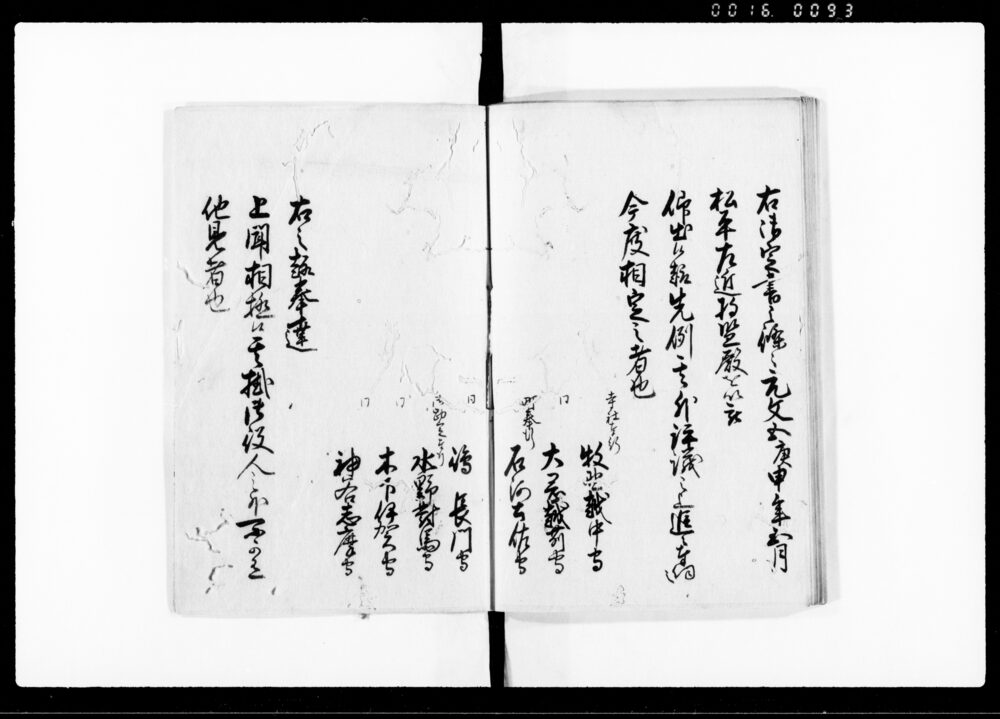 0016 0093
右御定書之條々元文五庚申年五月
松平左近将監殿を以被
仰出候趣先例其外評議之上追々奉窺
今度相定之者也
寺社奉行
牧野越中守
同
大岡越前守
町奉行
石河土佐守
同
嶋長門守
御勘定奉行
水野對馬守
同
木下伊賀守
同
神谷志摩守
右之趣奉達
上聞相極候其掛御役人之外不可有
他見者也